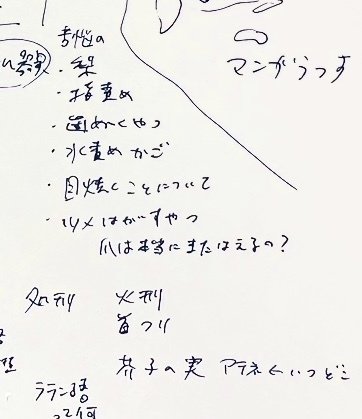 苦悩の
・梨
マンガうつす
・指責め
・歯ぬくやつ
・水責めかご
・目焼くことについて
・ツメはがすやつ
爪は本当にまたはえるの？
処刑 火刑
首つり
芥子の実 アテネ←いつどこ
ラテン語
って何